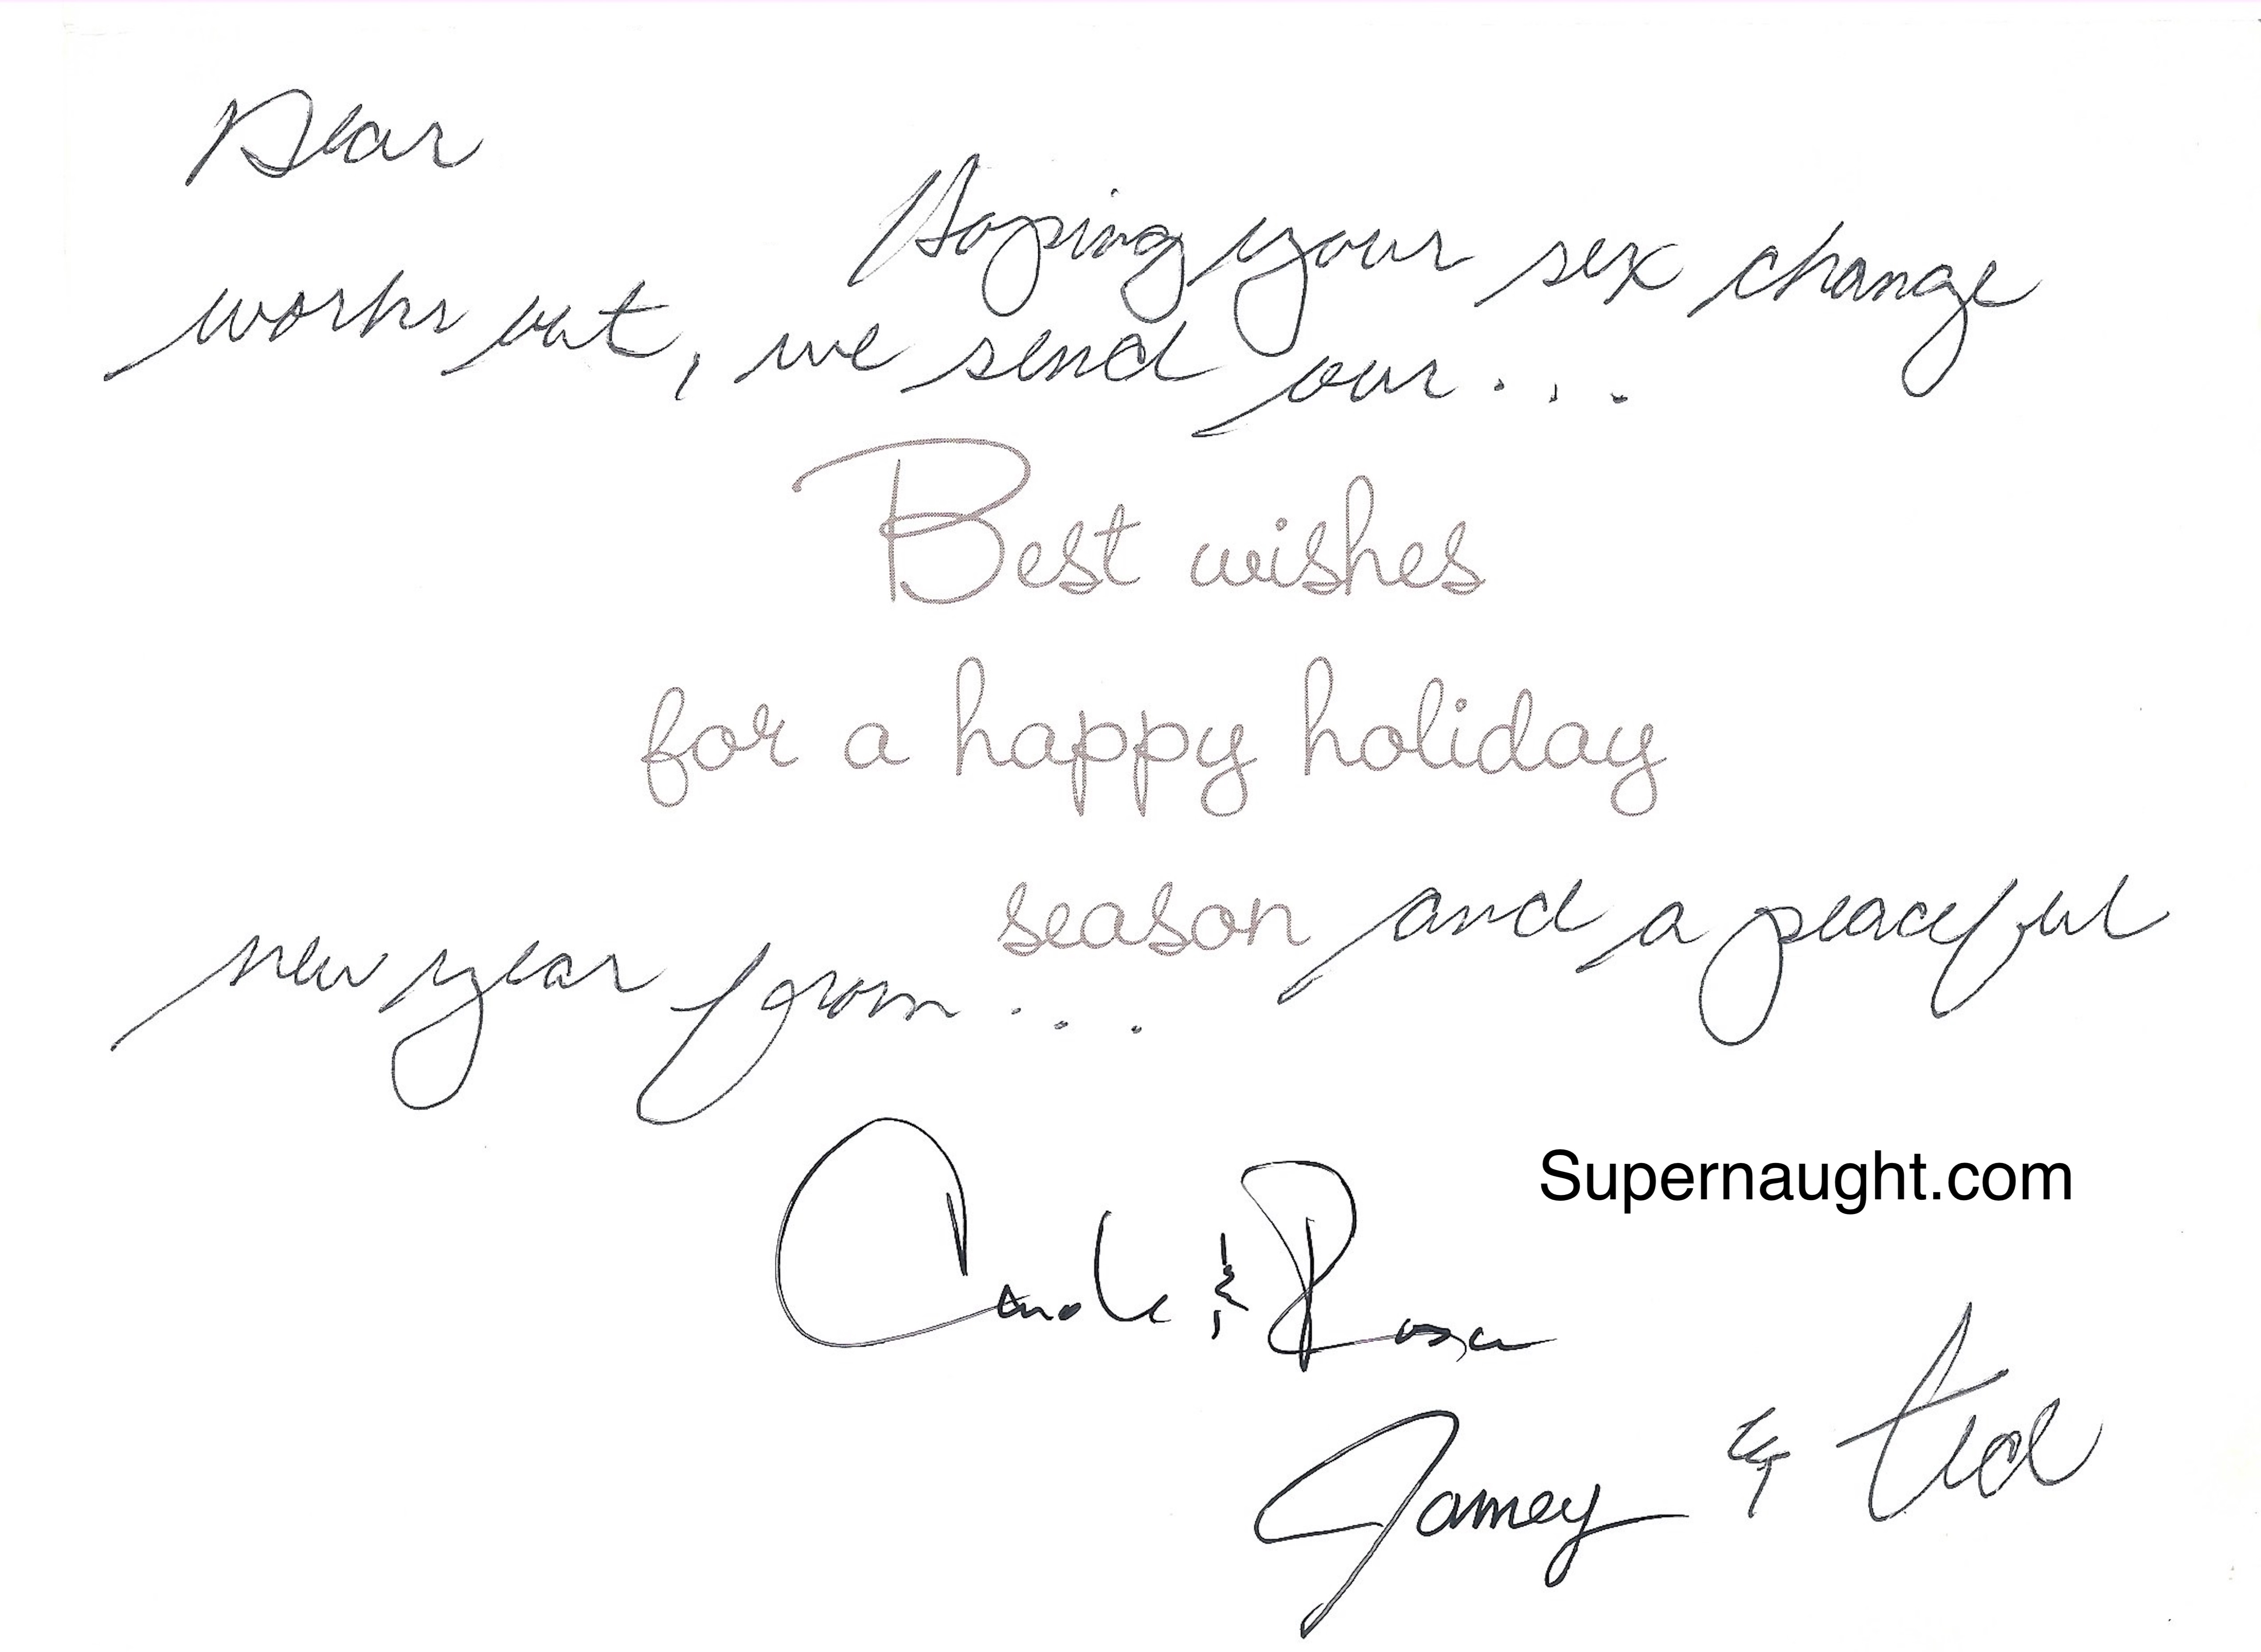 Dear
Hoping your sex change
works out, we send our...
Best wishes
for a happy holiday
season and a peaceful
new year from...
Carole & Rosa
Supernaught.com
Jamey & Ted